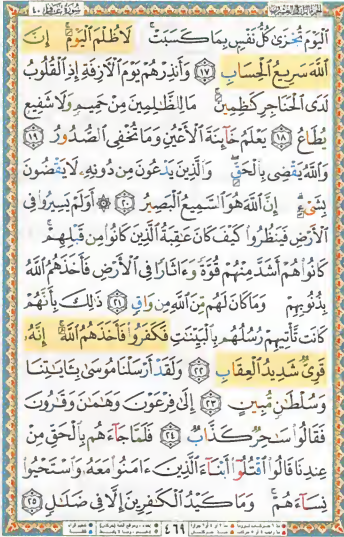 سورة غافر ٤٠
ٱلْيَوْمَ تُجْزَىٰ كُلُّ نَفْسٍۭ بِمَا كَسَبَتْ ۚ لَا ظُلْمَ ٱلْيَوْمَ ۚ إِنَّ
ٱللَّهَ سَرِيعُ ٱلْحِسَابِ ١٧ وَأَنذِرْهُمْ يَوْمَ ٱلْـَٔازِفَةِ إِذِ ٱلْقُلُوبُ
لَدَى ٱلْحَنَاجِرِ كَٰظِمِينَ ۚ مَا لِلظَّٰلِمِينَ مِنْ حَمِيمٍ وَلَا شَفِيعٍ
يُطَاعُ ١٨ يَعْلَمُ خَآئِنَةَ ٱلْأَعْيُنِ وَمَا تُخْفِى ٱلصُّدُورُ ١٩
وَٱللَّهُ يَقْضِى بِٱلْحَقِّ ۖ وَٱلَّذِينَ يَدْعُونَ مِن دُونِهِۦ لَا يَقْضُونَ
بِشَىْءٍ ۗ إِنَّ ٱللَّهَ هُوَ ٱلسَّمِيعُ ٱلْبَصِيرُ ٢٠ ۞ أَوَلَمْ يَسِيرُوا۟ فِى
ٱلْأَرْضِ فَيَنظُرُوا۟ كَيْفَ كَانَ عَٰقِبَةُ ٱلَّذِينَ كَانُوا۟ مِن قَبْلِهِمْ ۚ
كَانُوا۟ هُمْ أَشَدَّ مِنْهُمْ قُوَّةً وَءَاثَارًا فِى ٱلْأَرْضِ فَأَخَذَهُمُ ٱللَّهُ
بِذُنُوبِهِمْ وَمَا كَانَ لَهُم مِّنَ ٱللَّهِ مِن وَاقٍ ٢١ ذَٰلِكَ بِأَنَّهُمْ
كَانَت تَّأْتِيهِمْ رُسُلُهُم بِٱلْبَيِّنَٰتِ فَكَفَرُوا۟ فَأَخَذَهُمُ ٱللَّهُ ۚ إِنَّهُۥ
قَوِىٌّ شَدِيدُ ٱلْعِقَابِ ٢٢ وَلَقَدْ أَرْسَلْنَا مُوسَىٰ بِـَٔايَٰتِنَا
وَسُلْطَٰنٍ مُّبِينٍ ٢٣ إِلَىٰ فِرْعَوْنَ وَهَٰمَٰنَ وَقَٰرُونَ
فَقَالُوا۟ سَٰحِرٌ كَذَّابٌ ٢٤ فَلَمَّا جَآءَهُم بِٱلْحَقِّ مِنْ
عِندِنَا قَالُوا۟ ٱقْتُلُوٓا۟ أَبْنَآءَ ٱلَّذِينَ ءَامَنُوا۟ مَعَهُۥ وَٱسْتَحْيُوا۟
نِسَآءَهُمْ ۚ وَمَا كَيْدُ ٱلْكَٰفِرِينَ إِلَّا فِى ضَلَٰلٍ ٢٥
٤٦٩